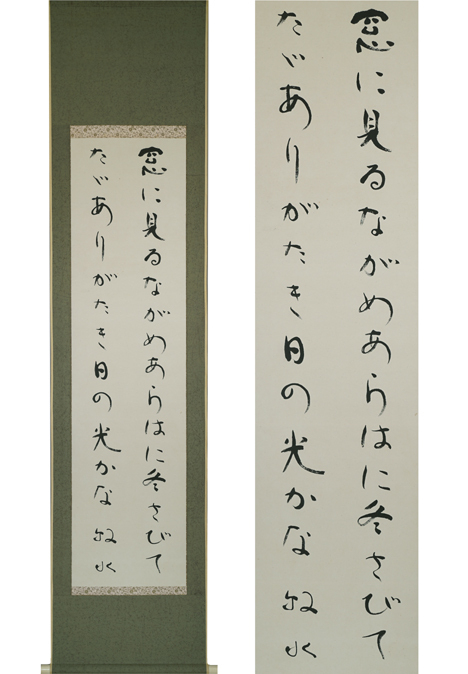 窓に見るながめあらはに冬さびて
たゞありがたき日の光かな 牧水
窓に見るながめあらはに冬さびて
たゞありがたき日の光かな 牧水